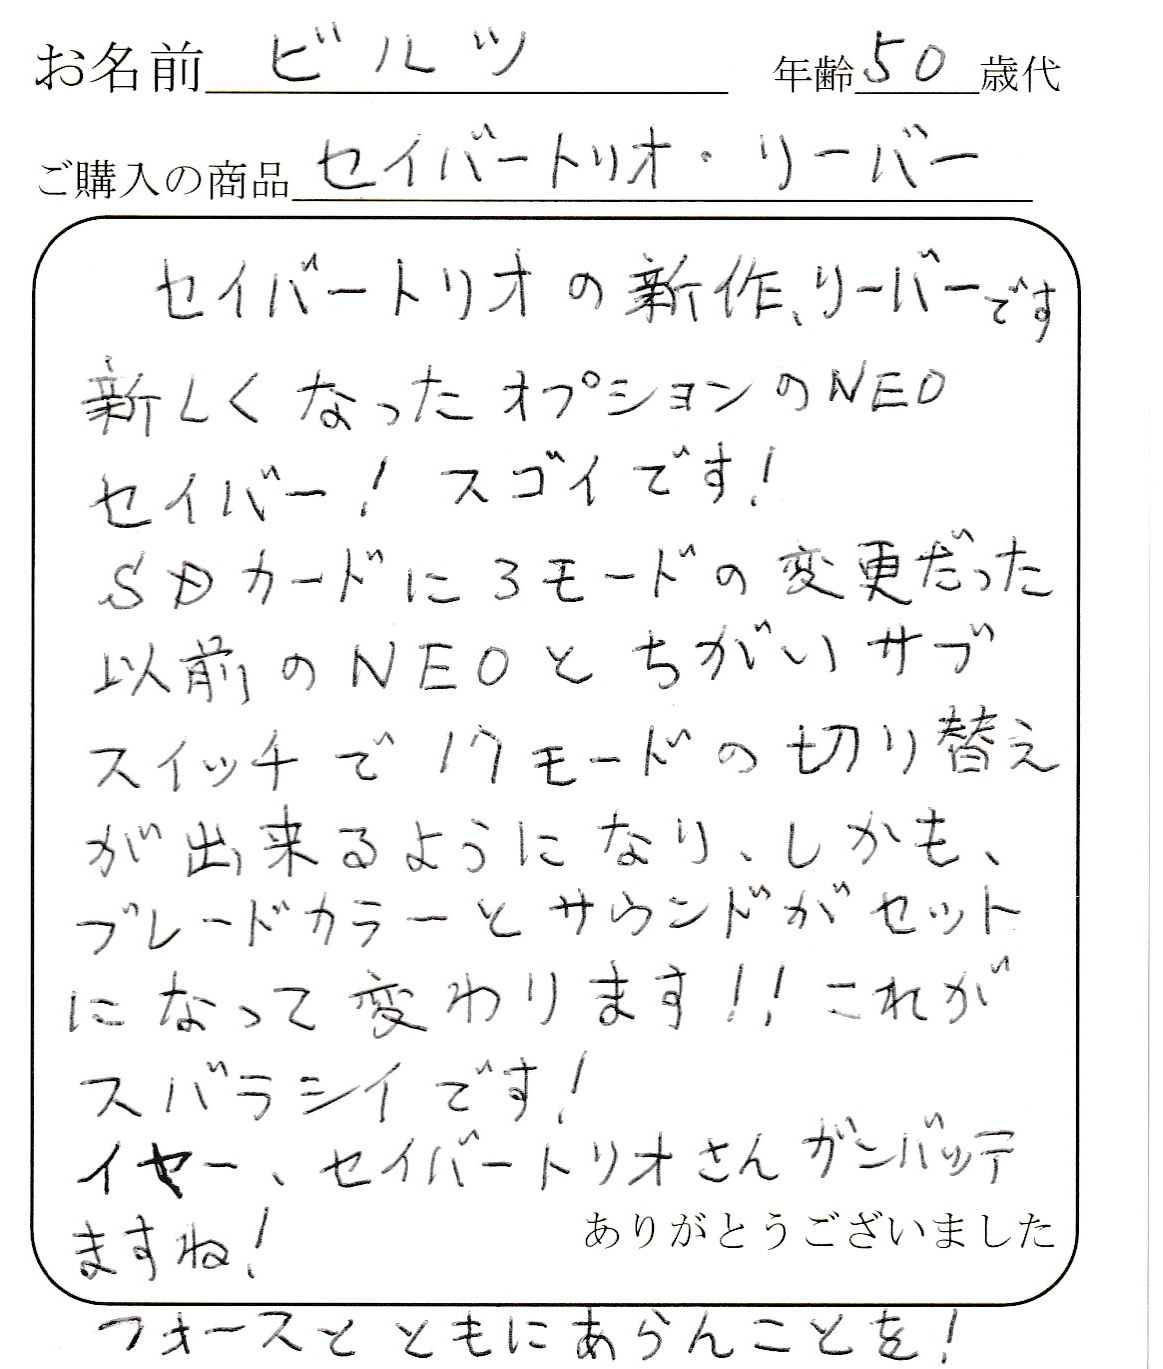 お名前 ビルツ 年齢 50 歳代
ご購入の商品 セイバートリオ・リーバー
セイバートリオの新作、リーバーです
新しくなったオプションのNEO
セイバー! スゴイです!
SDカードに3モードの変更だった
以前のNEOとちがいサブ
スイッチで17モードの切り替え
が出来るようになり、しかも、
ブレードカラーとサウンドがセット
になって変わります!! これが
スバラシイです!
イヤー、セイバートリオさんガンバッテ
ますね!
ありがとうございました
フォースとともにあらんことを!